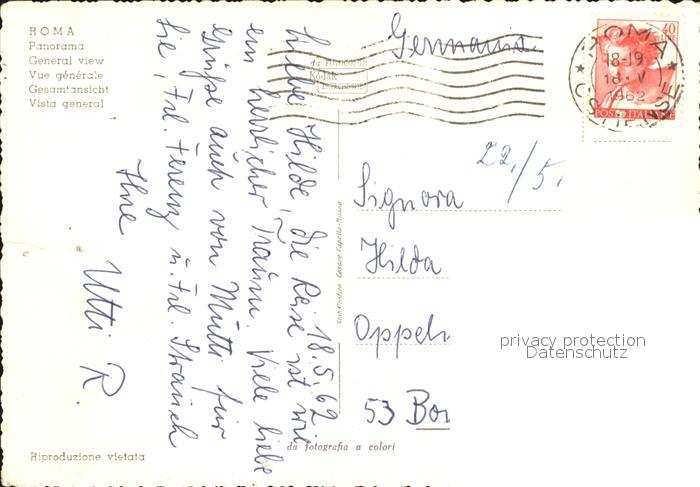 ROMA
Panorama
General view
Vue générale
Gesamtansicht
Vista general
Germania
da Fotocolor
Kodak
EKTACHROME
40
LIRE
POSTE ITALIANE
ROMA
18-19
18·V
1962
OSTIENSE
22./5.
18.5.62
Liebe Hilde, die Reise ist wie
ein herrlicher Traum. Viele liebe
Grüße auch von Mutti für
Sie, Frl. Ferenz u. Frl. Strauch
Ihre
Utti R.
Signora
Hilda
Oppeln
53 Bon
privacy protection
Datenschutz
Cesare Capello-Milano
da fotografia a colori
Riproduzione vietata